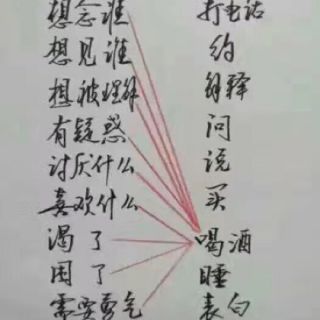 想念谁 打电话
想见谁 约
想被理解 解释
有疑惑 问
讨厌什么 说
喜欢什么 买
渴了 喝酒
困了 睡
需要勇气 表白